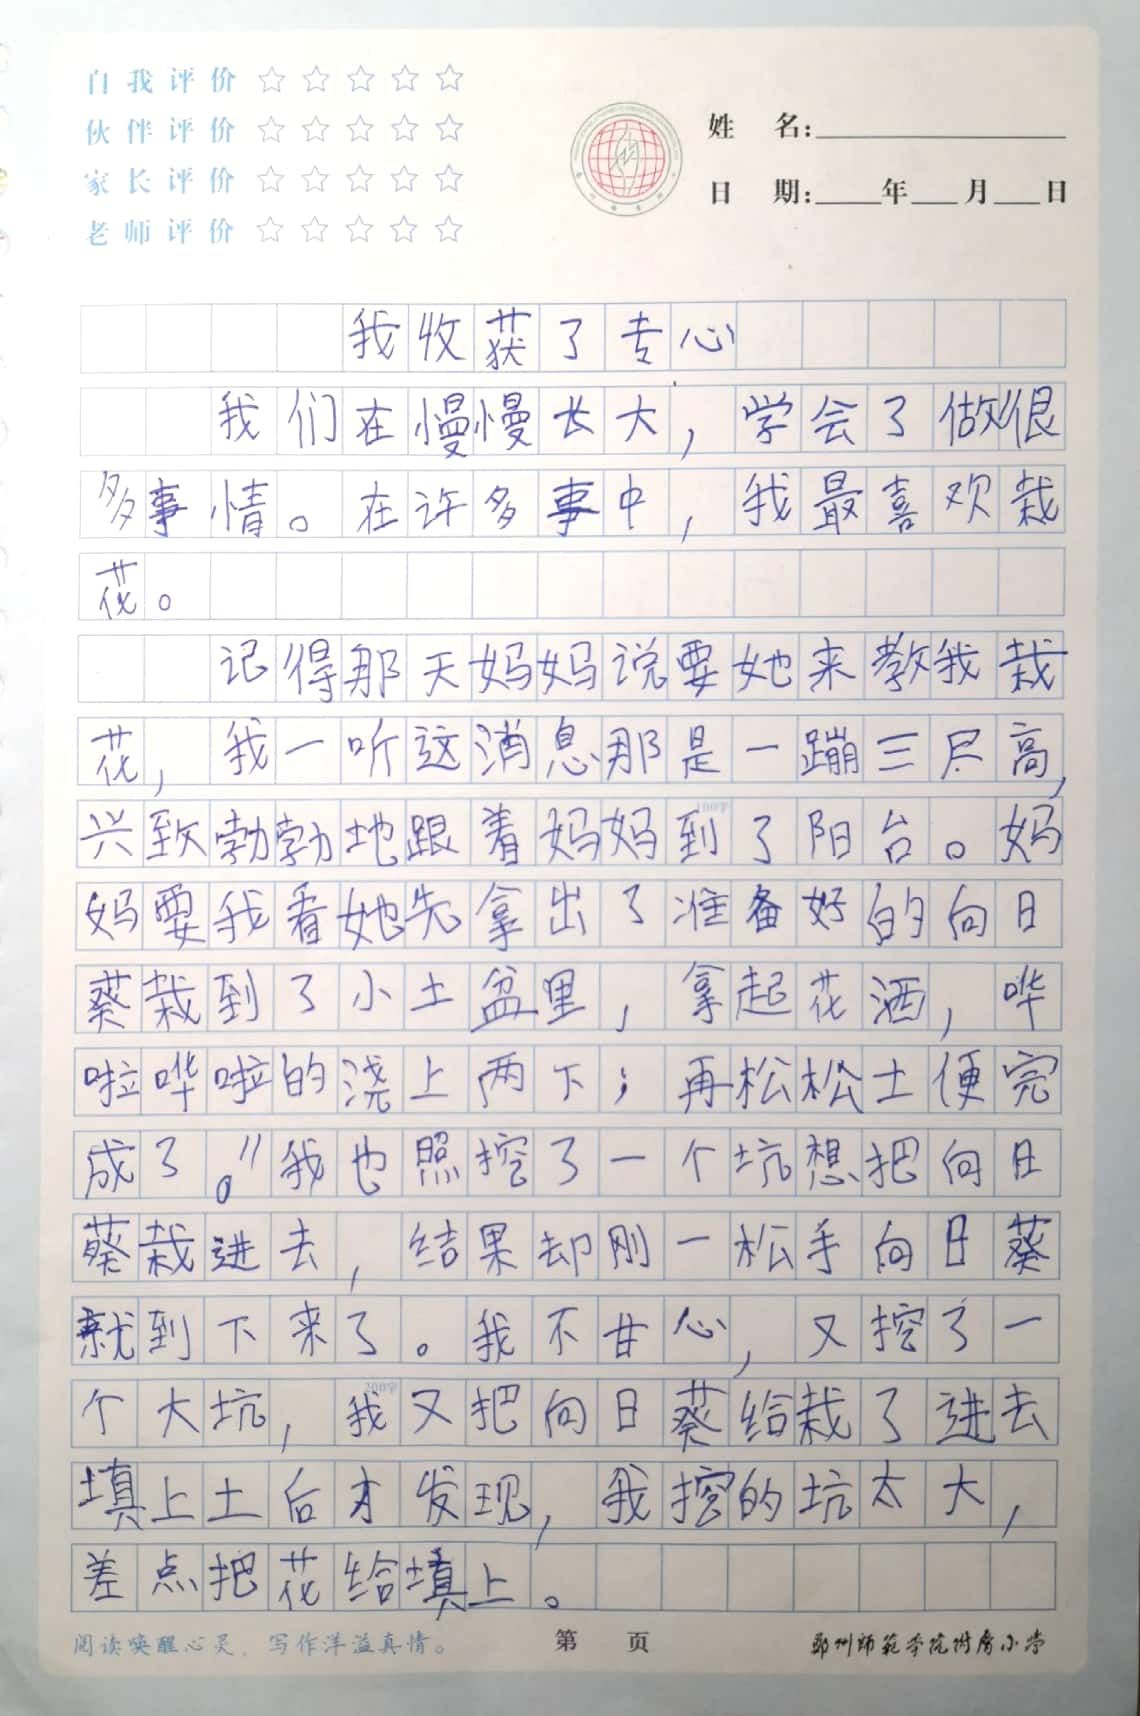 自我评价 ☆☆☆☆☆
伙伴评价 ☆☆☆☆☆
家长评价 ☆☆☆☆☆
老师评价 ☆☆☆☆☆
姓 名:
日 期: 年 月 日
我收获了专心
我们在慢慢长大，学会了做很
多事情。在许多事中，我最喜欢栽
花。
记得那天妈妈说要她来教我栽
花，我一听这消息那是一蹦三尺高，
兴致勃勃地跟着妈妈到了阳台。妈
100字
妈要我看她先拿出了准备好的向日
葵栽到了小土盆里，拿起花洒，哗
啦哗啦的浇上两下；再松松土便完
成了。”我也照挖了一个坑想把向日
葵栽进去，结果却刚一松手向日葵
就到下来了。我不甘心，又挖了一
个大坑，我又把向日葵给栽了进去
200字
填上土后才发现，我挖的坑太大，
差点把花给填上。
阅读唤醒心灵，写作洋溢真情。
第 页
鄂州师范学院附属小学